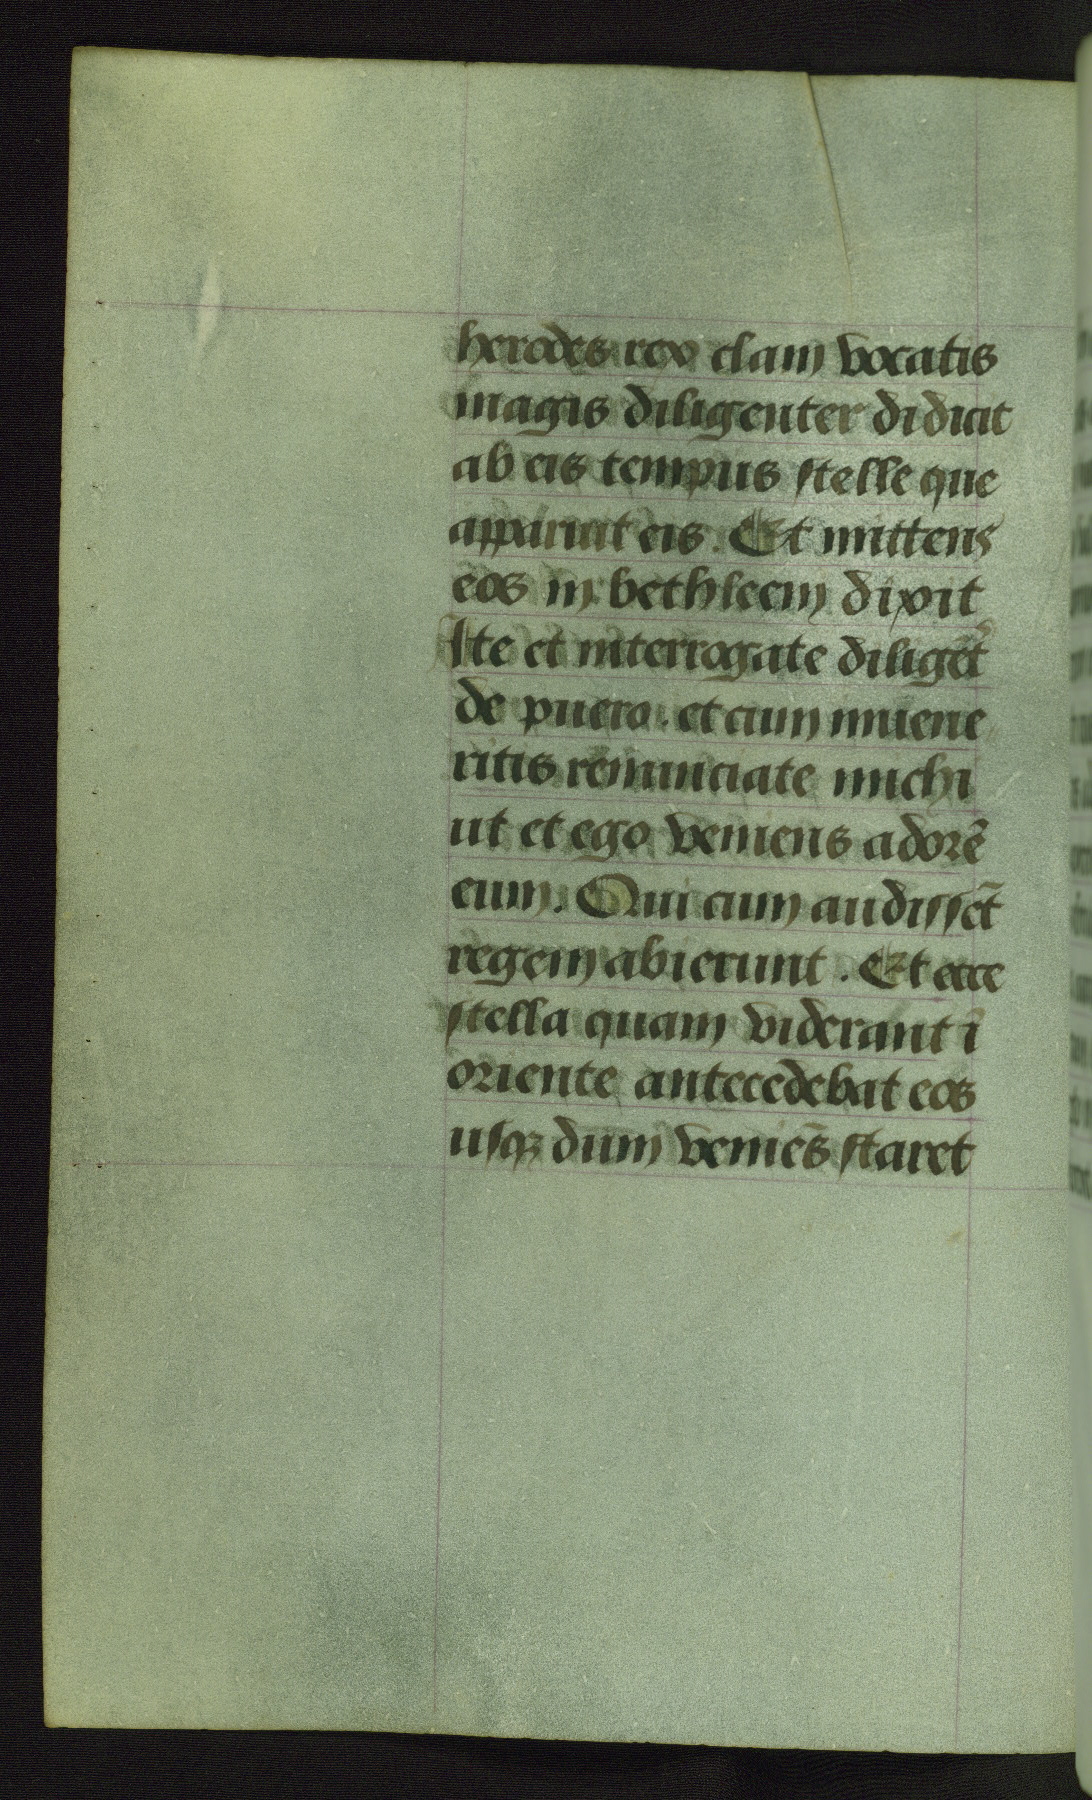 herodes rex clam vocatis
magis diligenter didicit
ab eis tempus stelle que
apparuit eis. Et mittens
eos in bethleem dixit
Ite et interrogate diligēt᷑
de puero. et cum inuene
ritis renunciate michi
ut et ego veniens adorē
eum. Qui cum audissēt
regem abierunt. Et ecce
stella quam viderant ī
oriente antecedebat eos
usqꝫ dum veniēs staret